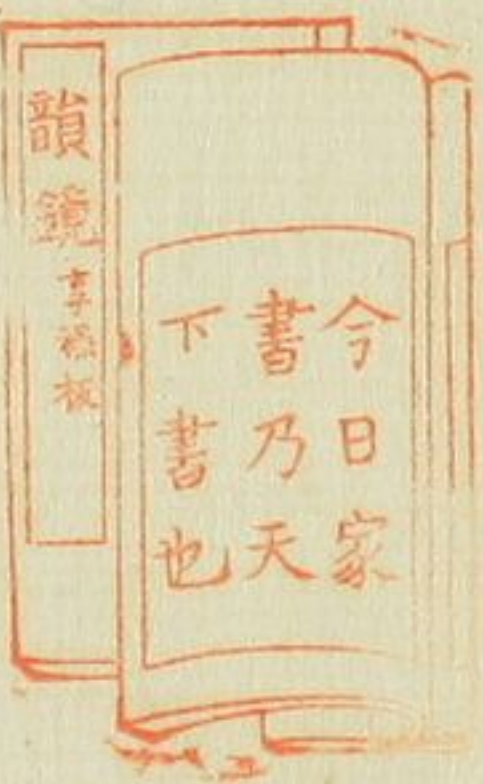 今日家
書乃天
下書也
韻鏡 享祿板